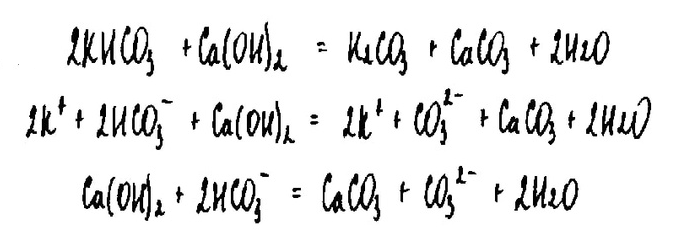 2KHCO₃ + Ca(OH)₂ = K₂CO₃ + CaCO₃ + 2H₂O
2K⁺ + 2HCO₃⁻ + Ca(OH)₂ = 2K⁺ + CO₃²⁻ + CaCO₃ + 2H₂O
Ca(OH)₂ + 2HCO₃⁻ = CaCO₃ + CO₃²⁻ + 2H₂O